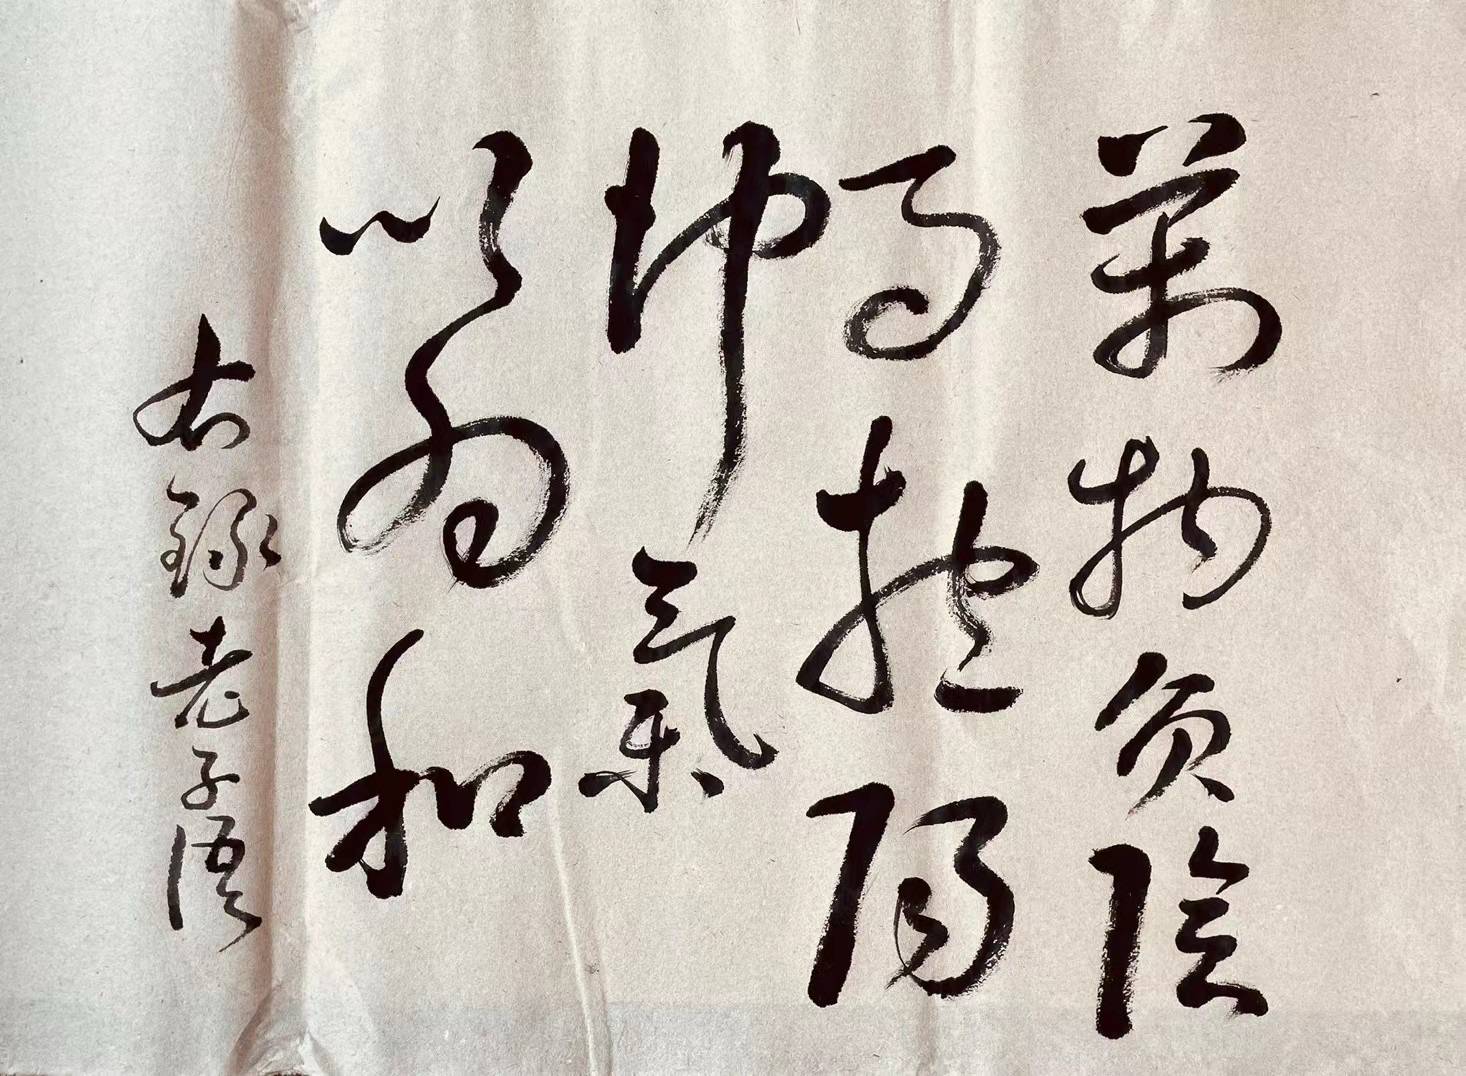 萬物負陰
而抱陽
沖氣
以為和
右録老子語